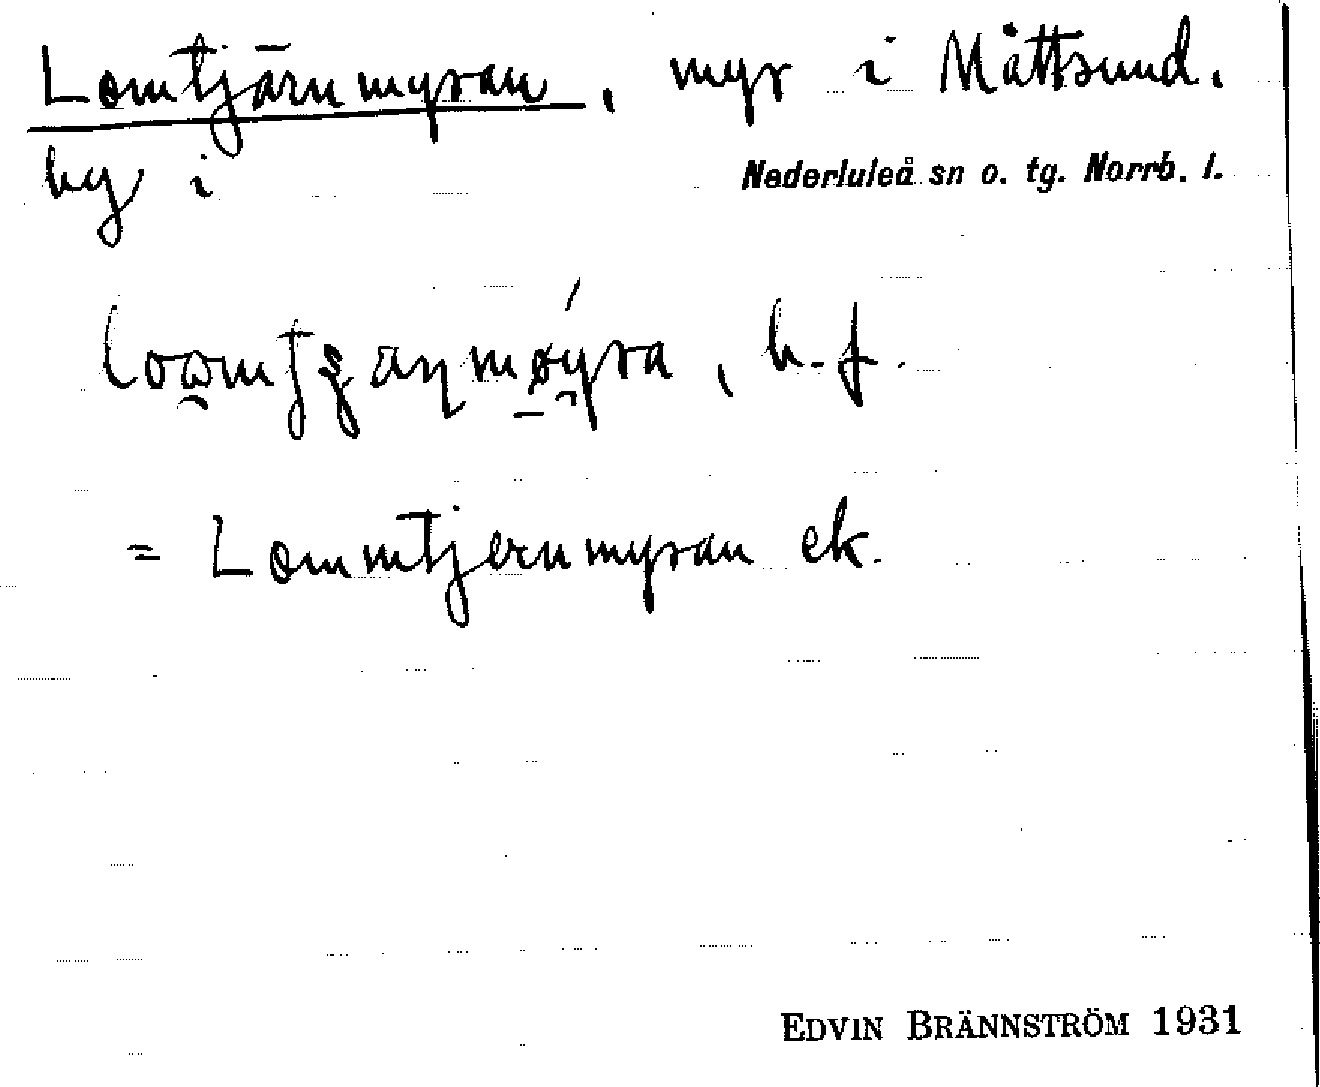 Lomtjärnmyran, myr i Måttsund,
by i Nederluleå sn o. tg. Norrb. l.
b. f.
= Lommtjernmyran ek.
EDVIN BRÄNNSTRÖM 1931